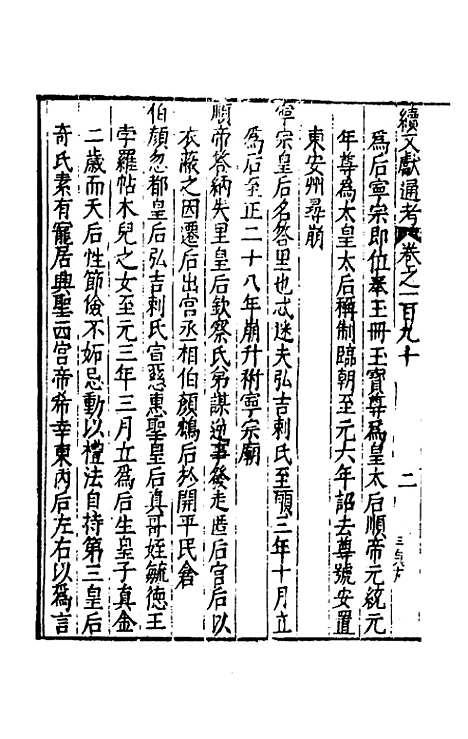 續文獻通考卷之一百九十 二
為后寧宗即位奉王冊玉寶尊為皇太后順帝元統元
年尊為太皇太后稱制臨朝至元六年詔去尊號安置
東安州尋崩
寧宗皇后名答里也忒迷失弘吉剌氏至順三年十月立
為后至正二十八年崩升祔寧宗廟
順帝答納失里皇后欽察氏弟謀逆事發走匿后宮后以
衣蔽之因遷后出宮丞相伯顏鴆后於開平民舍
伯顏忽都皇后弘吉剌氏宣慈惠聖皇后真哥姪毓德王
孛羅帖木兒之女至元三年三月立為后生皇子真金
二歲而夭后性節儉不妬忌動以禮法自持第三皇后
奇氏素有寵居興聖西宮帝希幸東內后左右以為言